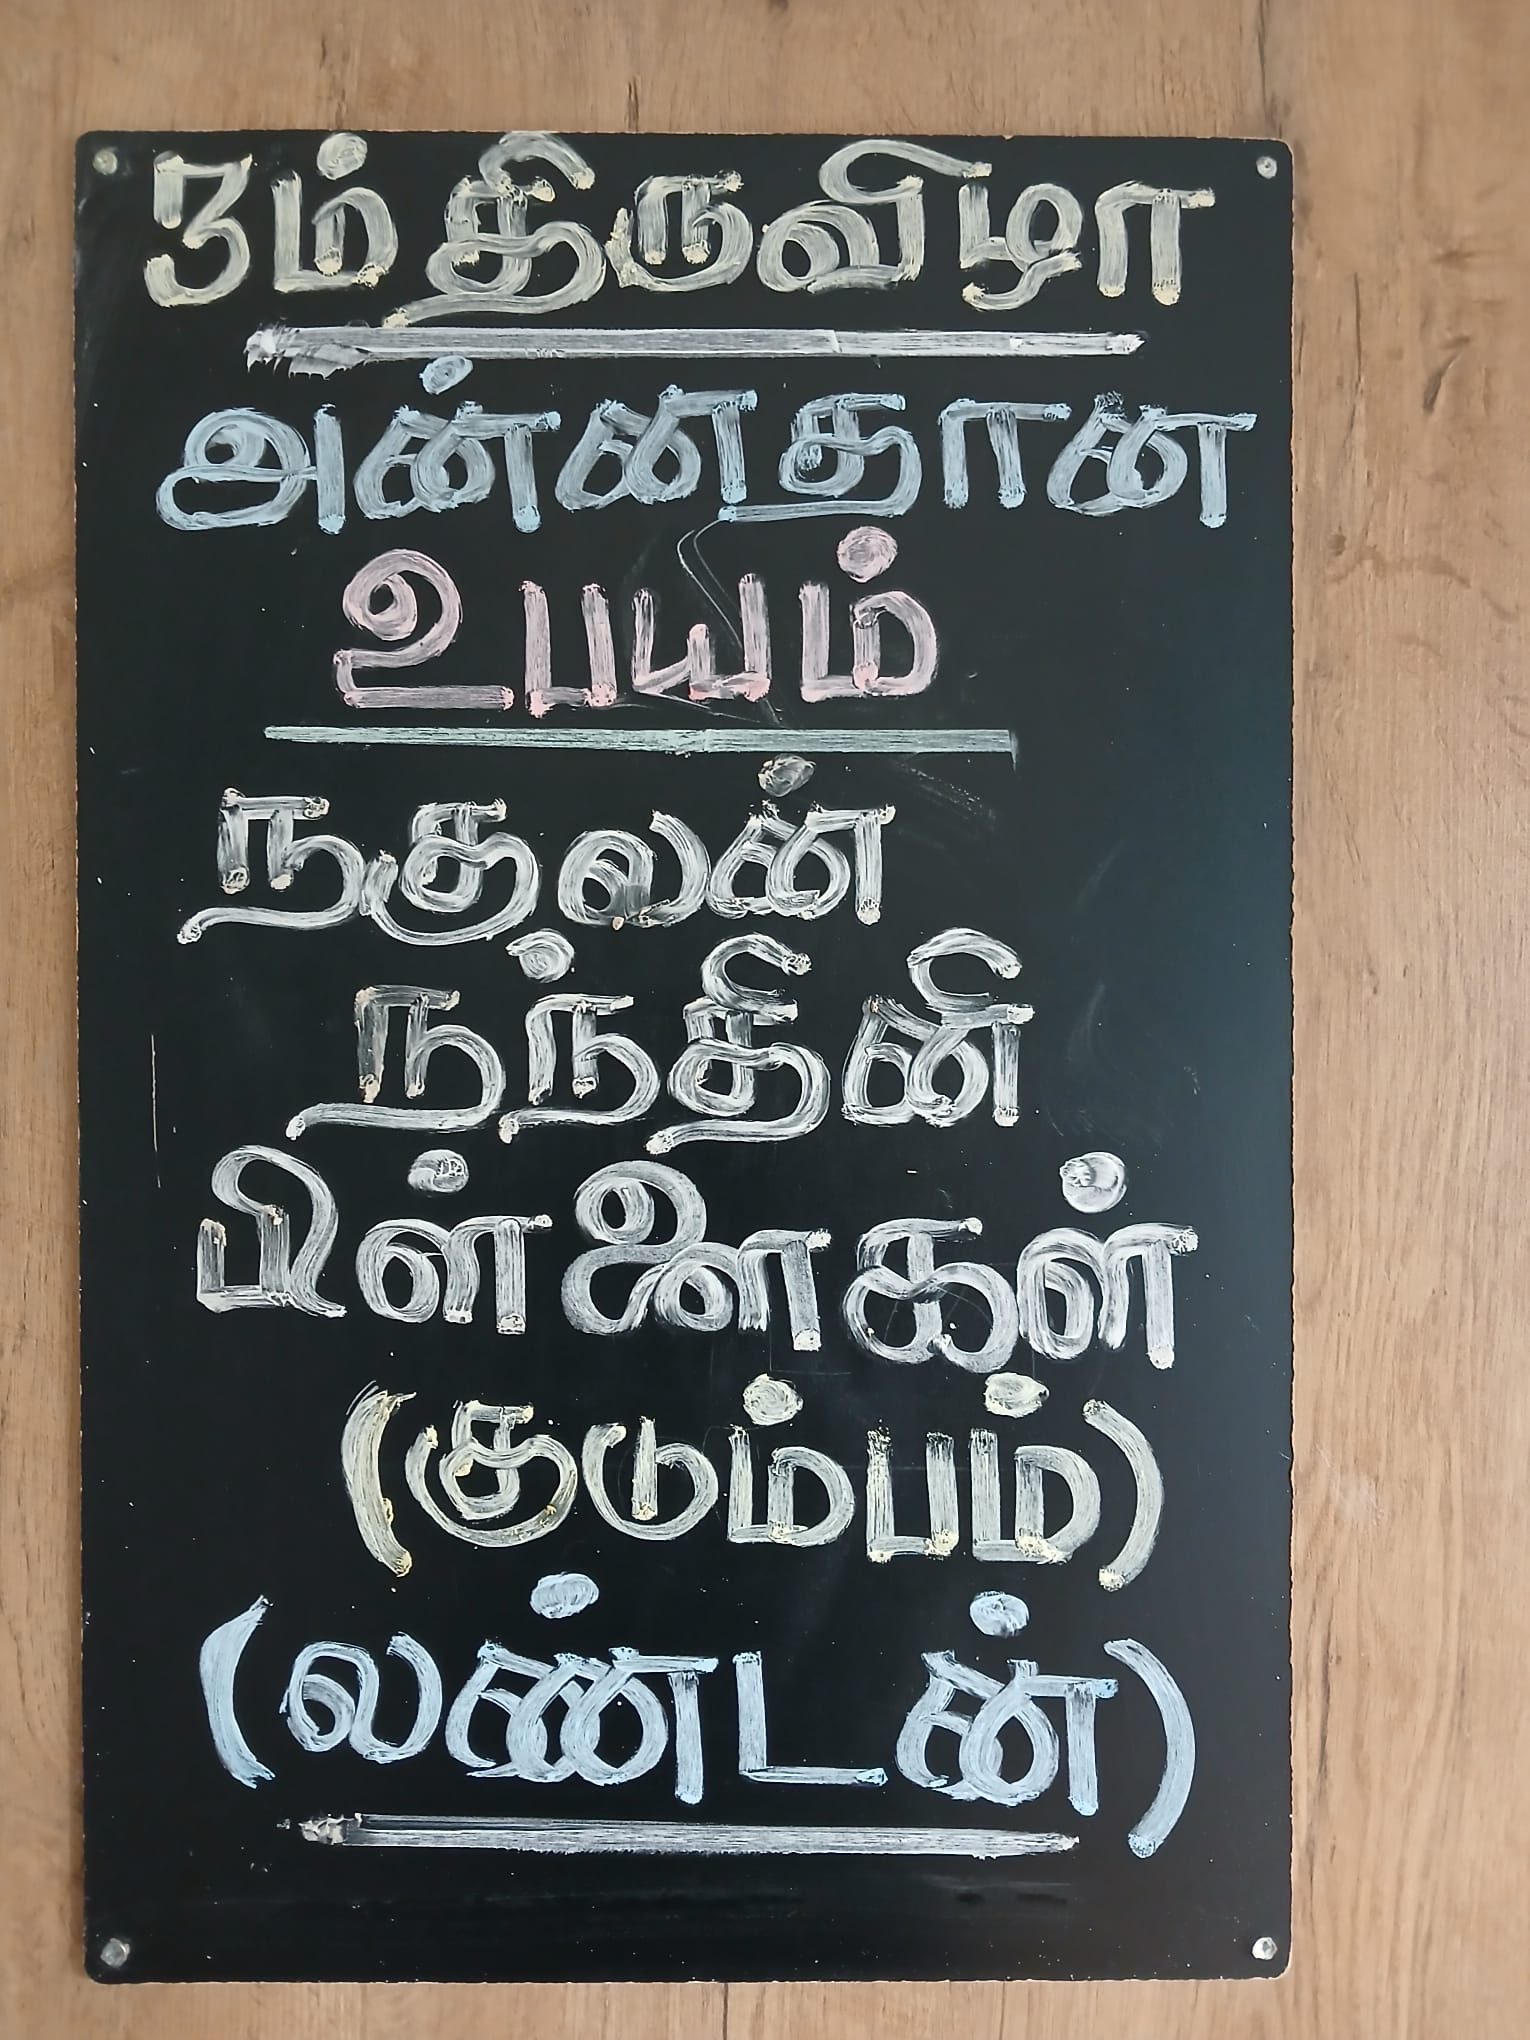 3ம் திருவிழா
அன்னதான
உபயம்
நகுலன்
நந்தினி
பிள்ளைகள்
(குடும்பம்)
(லண்டன்)